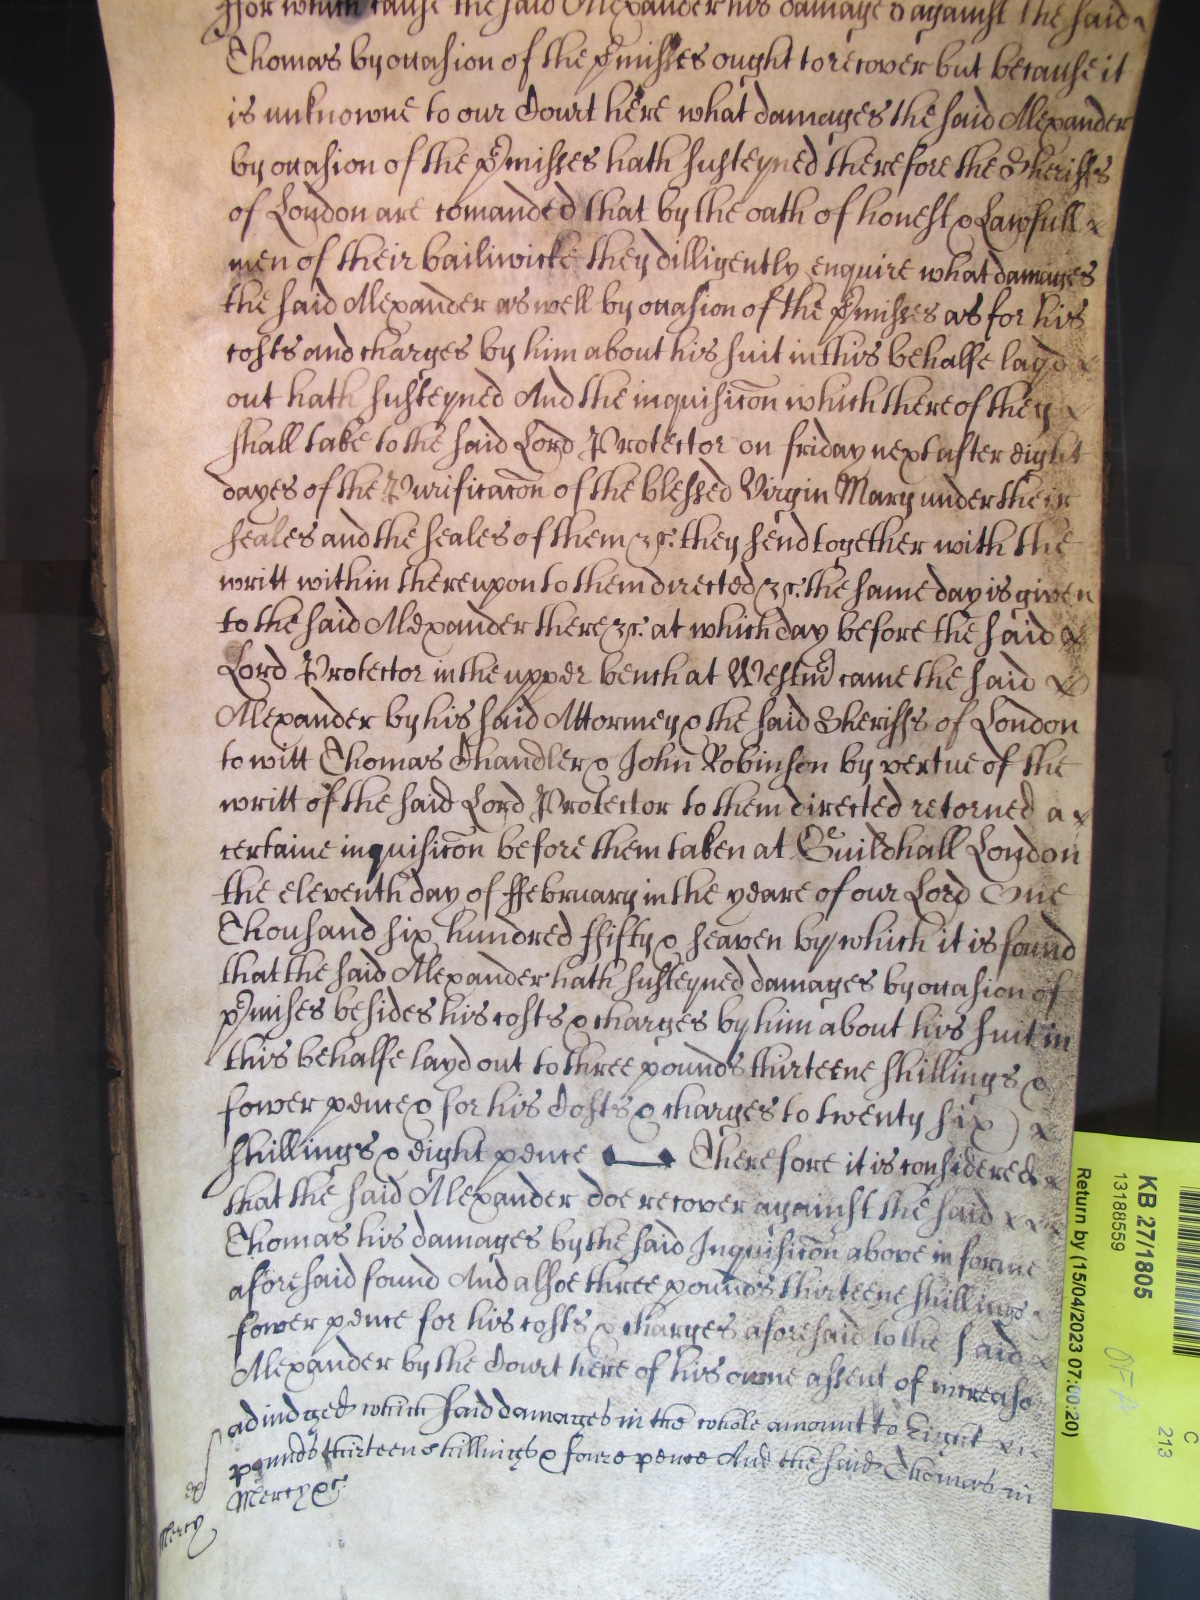 ffor which cause the said Alexander his damages against the said
Thomas by occasion of the p̱misses ought to recover but because it
is unknowne to our Court here what damages the said Alexander
by occasion of the p̱misses hath susteyned therefore the Sheriffs
of London are comanded that by the oath of honest & Lawfull
men of their bailiwicke they dilligently enquire what damages
the said Alexander as well by occasion of the p̱misses as for his
costs and charges by him about his suit in this behalfe layd
out hath susteyned And the inquisicōn which thereof they
shall take to the said Lord Protector on friday next after Eight
dayes of the Purificacōn of the blessed Virgin Mary under their
seales and the seales of them &c. they send together with the
writt within thereupon to them directed &c. the same day is given
to the said Alexander there &c. at which day before the said
Lord Protector in the upper bench at Westmr came the said
Alexander by his said Attorney & the said Sheriffs of London
to witt Thomas Chandler & John Robinson by vertue of the
writt of the said Lord Protector to them directed retorned a
certaine inquisicōn before them taken at Guildhall London
the eleventh day of ffebruary in the yeare of our Lord One
Thousand six hundred ffifty & seaven by which it is found
that the said Alexander hath susteyned damages by occasion of
p̱mises besides his costs & charges by him about his suit in
this behalfe layd out to three pounds thirteene shillings &
fower pence & for his Costs & charges to twenty six
shillings & eight pence Therefore it is considered
that the said Alexander doe recover against the said
Thomas his damages by the said Inquisicōn above in forme
aforesaid found And alsoe three pounds thirteene shillings
fower pence for his costs & charges aforesaid to the said
Alexander by the Court here of his owne assent of increase
adiudged which said damages in the whole amount to Eight
pounds thirteen shillings & foure pence And the said Thomas in
Mercy &c
Mercy
KB 27/1805
13188559
Return by (15/04/2023 07:00:20)
C
213